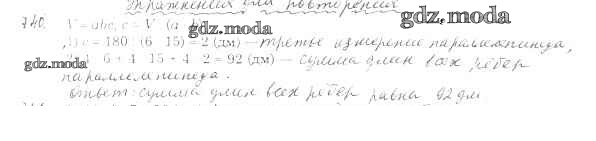 Упражнения для повторения
gdz.moda
740. V = abc, c = V (a
gdz.moda
1) c = 180 (6 15) = 2 (дм) — третье измерение параллелепипеда,
gdz.moda
6 + 4 15 + 4 2 = 92 (дм) — сумма длин всех ребер
параллелепипеда.
Ответ: сумма длин всех ребер равна 92 дм